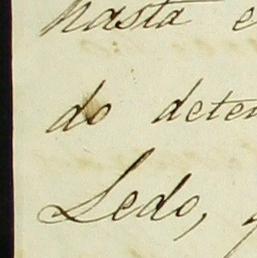 hasta e
do deten
Ledo,